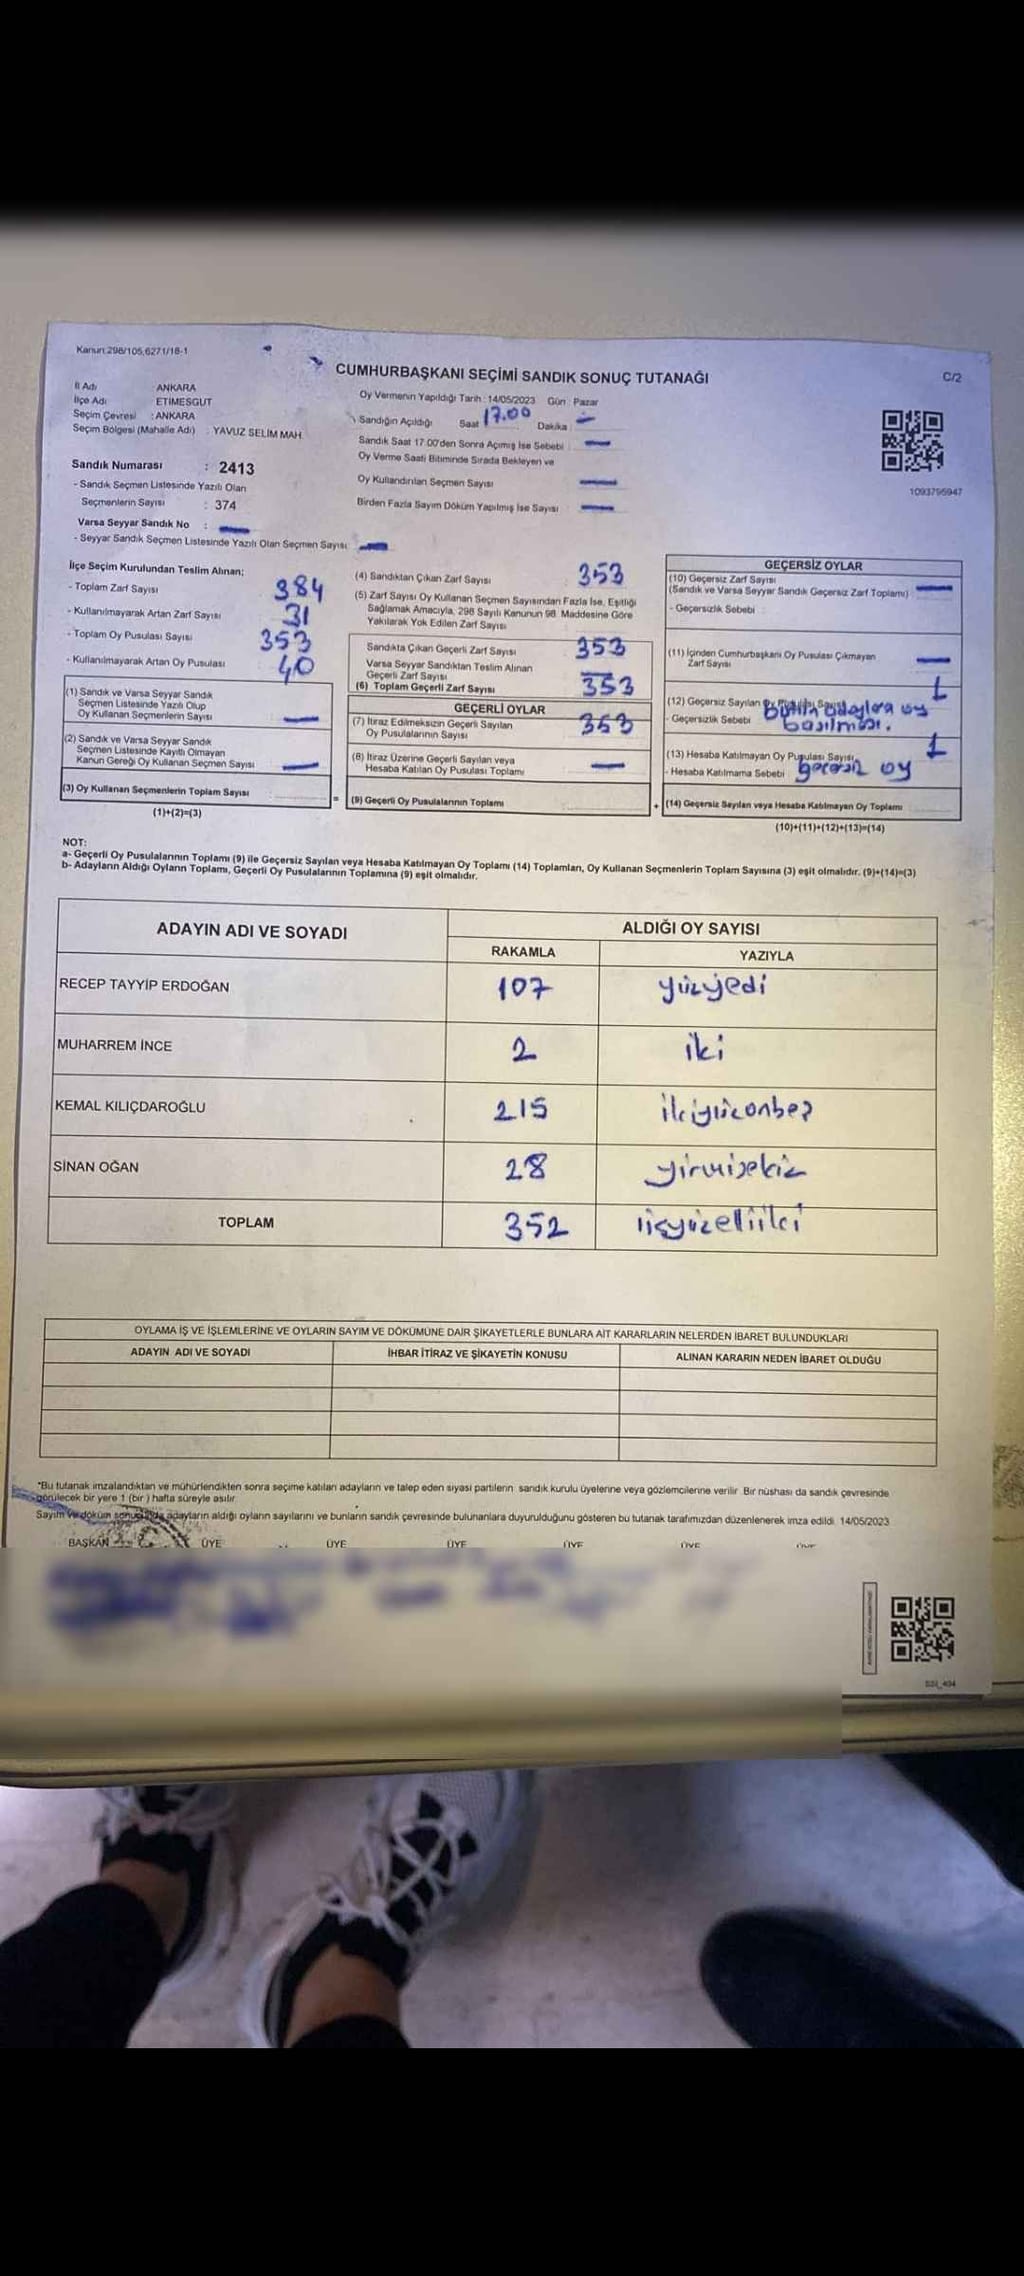 Kanun:298/105,6271/18-1
CUMHURBAŞKANI SEÇİMİ SANDIK SONUÇ TUTANAĞI
C/2
İl Adı ANKARA
İlçe Adı ETİMESGUT
Seçim Çevresi : ANKARA
Seçim Bölgesi (Mahalle Adı) : YAVUZ SELİM MAH.
Sandık Numarası : 2413
- Sandık Seçmen Listesinde Yazılı Olan
Seçmenlerin Sayısı : 374
Varsa Seyyar Sandık No :
- Seyyar Sandık Seçmen Listesinde Yazılı Olan Seçmen Sayısı
Oy Vermenin Yapıldığı Tarih : 14/05/2023 Gün : Pazar
Sandığın Açıldığı Saat 17.00 Dakika
Sandık Saat 17.00'den Sonra Açımış İse Sebebi
Oy Verme Saati Bitiminde Sırada Bekleyen ve
Oy Kullandırılan Seçmen Sayısı
Birden Fazla Sayım Döküm Yapılmış İse Sayısı
1093795947
İlçe Seçim Kurulundan Teslim Alınan;
- Toplam Zarf Sayısı 384
- Kullanılmayarak Artan Zarf Sayısı 31
- Toplam Oy Pusulası Sayısı 353
- Kullanılmayarak Artan Oy Pusulası 40
(1) Sandık ve Varsa Seyyar Sandık
Seçmen Listesinde Yazılı Olup
Oy Kullanan Seçmenlerin Sayısı
(2) Sandık ve Varsa Seyyar Sandık
Seçmen Listesinde Kayıtlı Olmayan
Kanun Gereği Oy Kullanan Seçmen Sayısı
(3) Oy Kullanan Seçmenlerin Toplam Sayısı
(1)+(2)=(3)
(4) Sandıktan Çıkan Zarf Sayısı 353
(5) Zarf Sayısı Oy Kullanan Seçmen Sayısından Fazla İse, Eşitliği
Sağlamak Amacıyla, 298 Sayılı Kanunun 98. Maddesine Göre
Yakılarak Yok Edilen Zarf Sayısı
Sandıkta Çıkan Geçerli Zarf Sayısı 353
Varsa Seyyar Sandıktan Teslim Alınan
Geçerli Zarf Sayısı
(6) Toplam Geçerli Zarf Sayısı 353
GEÇERLİ OYLAR
(7) İtiraz Edilmeksizin Geçerli Sayılan
Oy Pusulalarının Sayısı 353
(8) İtiraz Üzerine Geçerli Sayılan veya
Hesaba Katılan Oy Pusulası Toplamı
= (9) Geçerli Oy Pusulalarının Toplamı +
GEÇERSİZ OYLAR
(10) Geçersiz Zarf Sayısı
(Sandık ve Varsa Seyyar Sandık Geçersiz Zarf Toplamı)
- Geçersizlik Sebebi
(11) İçinden Cumhurbaşkanı Oy Pusulası Çıkmayan
Zarf Sayısı
(12) Geçersiz Sayılan Oy Pusulası Sayısı 1
- Geçersizlik Sebebi bütün adaylara oy
basılması.
(13) Hesaba Katılmayan Oy Pusulası Sayısı 1
- Hesaba Katılmama Sebebi geçersiz oy
(14) Geçersiz Sayılan veya Hesaba Katılmayan Oy Toplamı
(10)+(11)+(12)+(13)=(14)
NOT:
a- Geçerli Oy Pusulalarının Toplamı (9) ile Geçersiz Sayılan veya Hesaba Katılmayan Oy Toplamı (14) Toplamları, Oy Kullanan Seçmenlerin Toplam Sayısına (3) eşit olmalıdır. (9)+(14)=(3)
b- Adayların Aldığı Oyların Toplamı, Geçerli Oy Pusulalarının Toplamına (9) eşit olmalıdır.
ADAYIN ADI VE SOYADI ALDIĞI OY SAYISI
RAKAMLA YAZIYLA
RECEP TAYYİP ERDOĞAN 107 yüzyedi
MUHARREM İNCE 2 iki
KEMAL KILIÇDAROĞLU 215 ikiyüzonbeş
SİNAN OĞAN 28 yirmisekiz
TOPLAM 352 üçyüzelliiki
OYLAMA İŞ VE İŞLEMLERİNE VE OYLARIN SAYIM VE DÖKÜMÜNE DAİR ŞİKAYETLERLE BUNLARA AİT KARARLARIN NELERDEN İBARET BULUNDUKLARI
ADAYIN ADI VE SOYADI İHBAR İTİRAZ VE ŞİKAYETİN KONUSU ALINAN KARARIN NEDEN İBARET OLDUĞU
*Bu tutanak imzalandıktan ve mühürlendikten sonra seçime katılan adayların ve talep eden siyasi partilerin sandık kurulu üyelerine veya gözlemcilerine verilir. Bir nüshası da sandık çevresinde
görülecek bir yere 1 (bir ) hafta süreyle asılır.
Sayım ve döküm sonucunda adayların aldığı oyların sayılarını ve bunların sandık çevresinde bulunanlara duyurulduğunu gösteren bu tutanak tarafımızdan düzenlenerek imza edildi. 14/05/2023
BAŞKAN ÜYE ÜYE ÜYE ÜYE ÜYE ÜYE